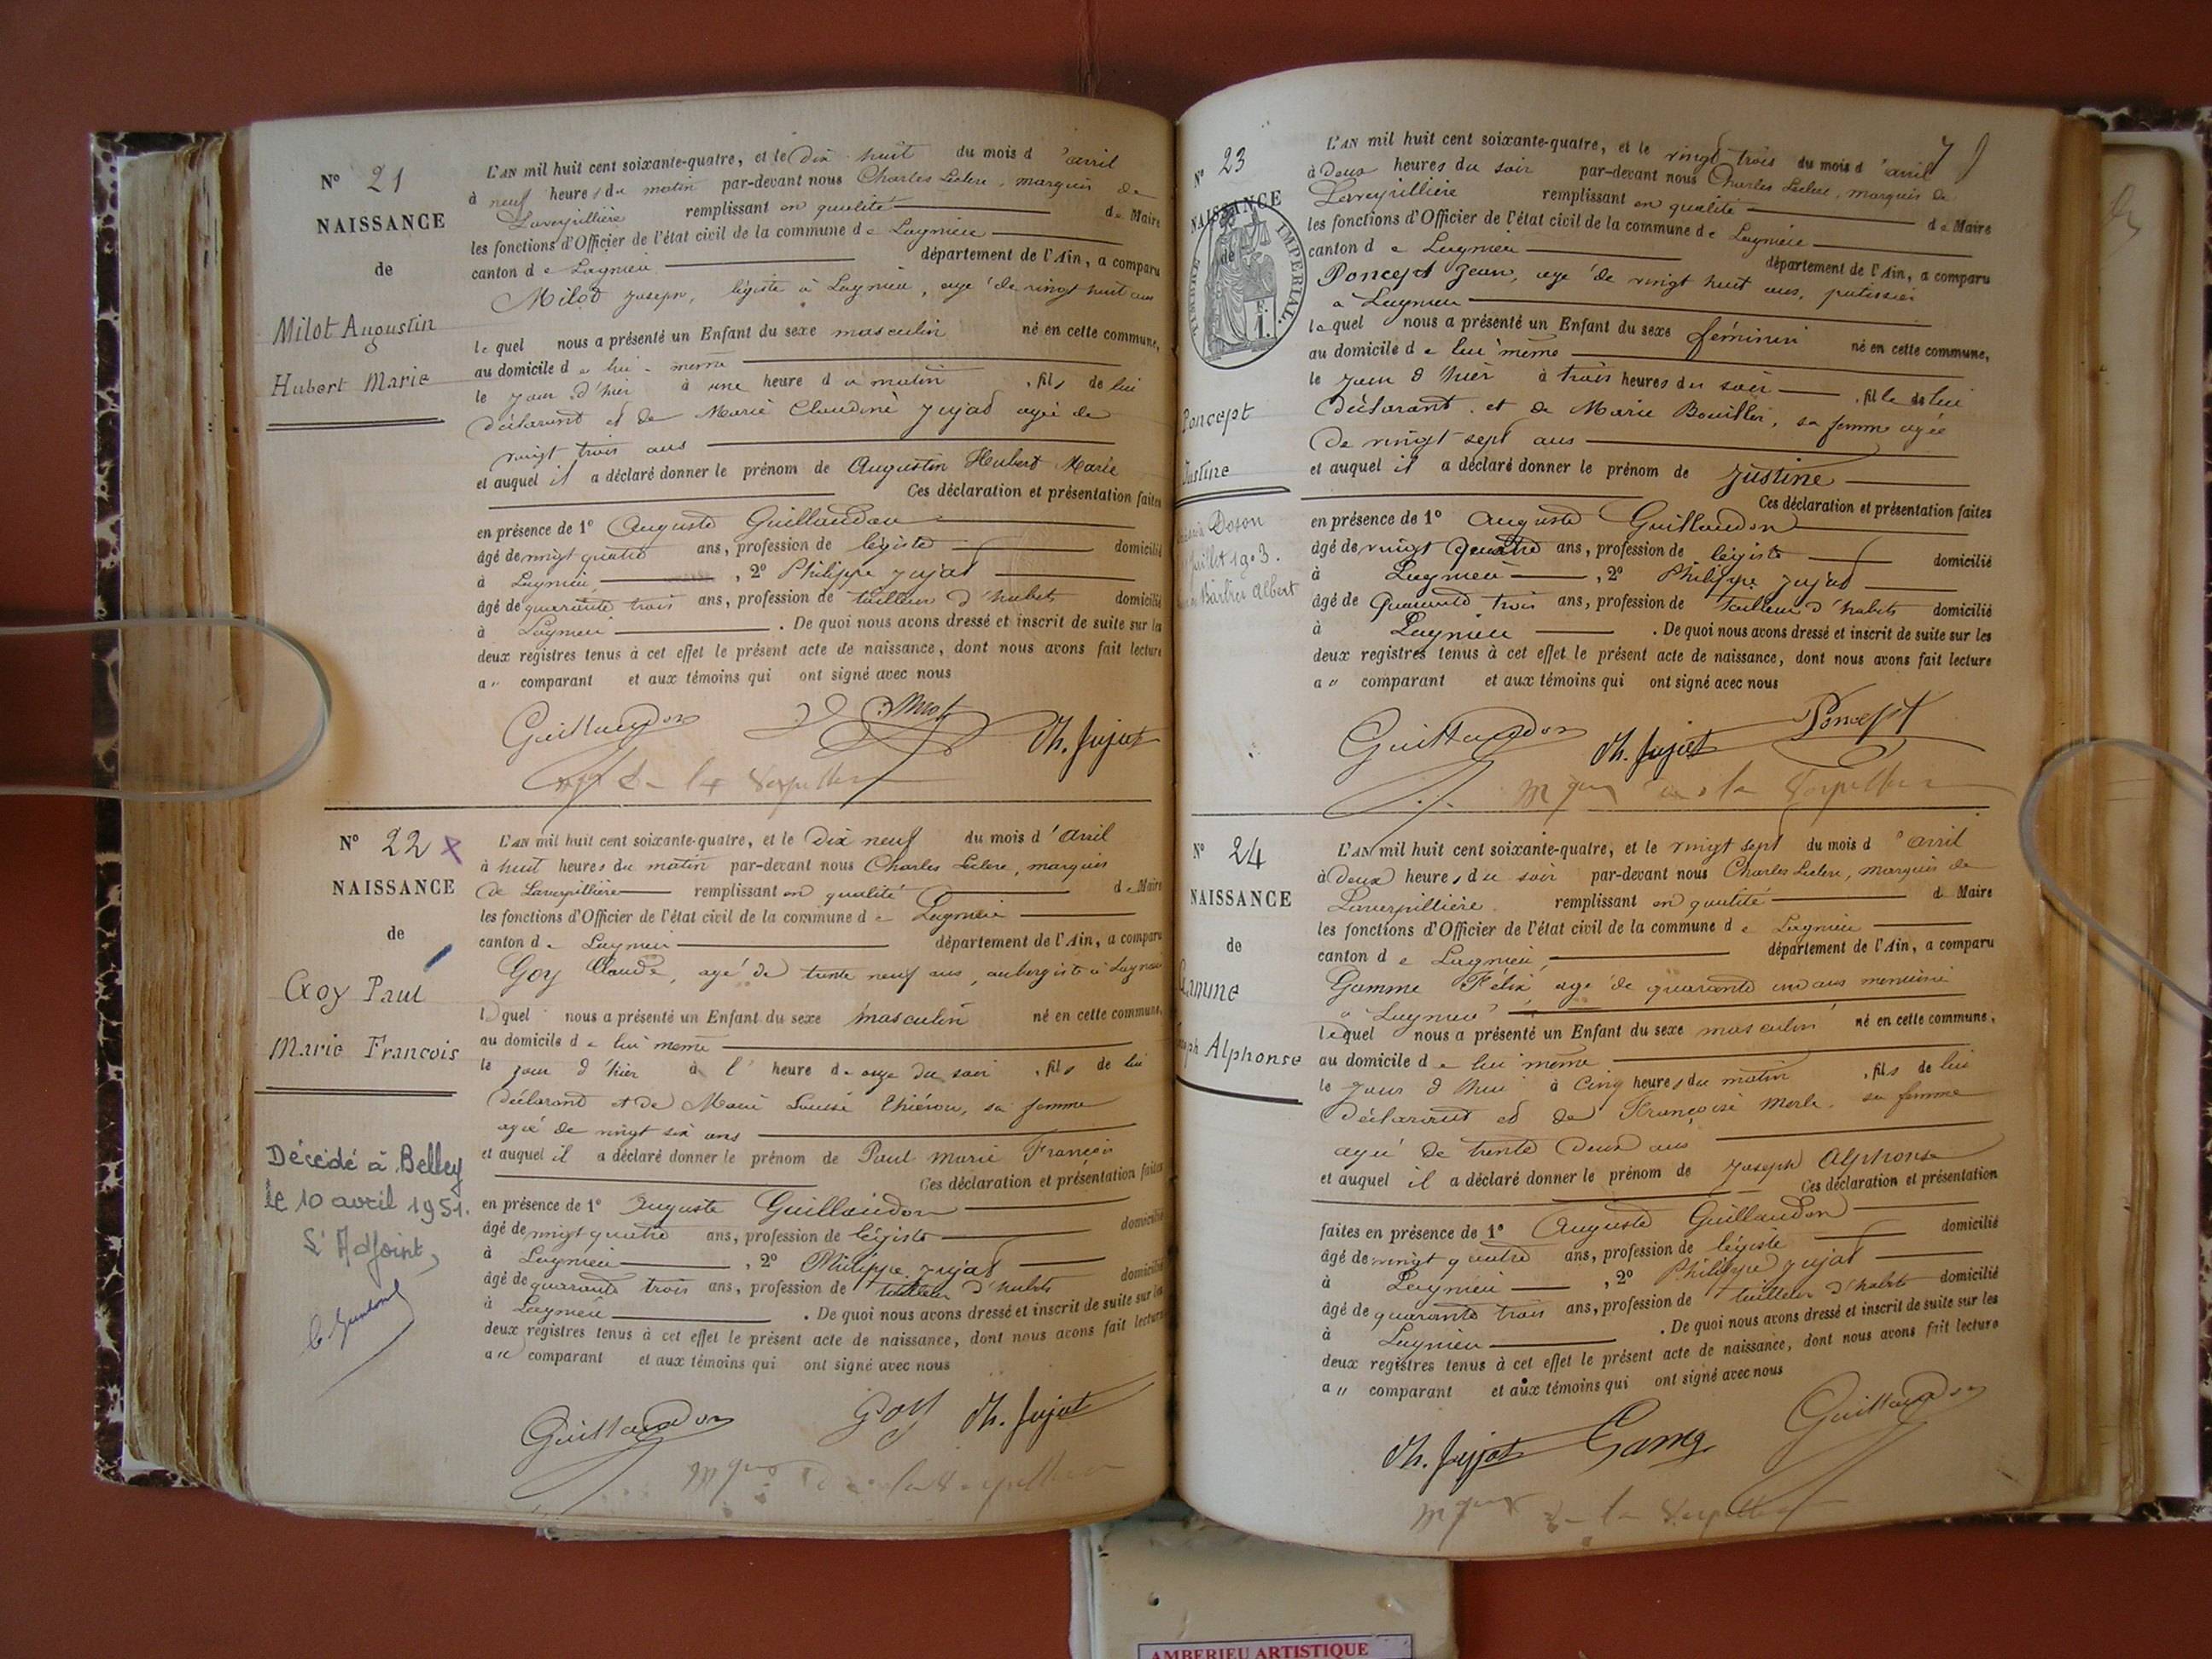 N° 21
NAISSANCE
de
Milot Augustin
Hubert Marie
L'AN mil huit cent soixante-quatre, et le Dix huit du mois d'avril
à neuf heures du matin par-devant nous Charles Leclerc, marquis de
Laverpillière remplissant en qualité de Maire
les fonctions d'Officier de l'état civil de la commune de Lagnieu
canton de Lagnieu département de l'Ain, a comparu
Milot Joseph, légiste à Lagnieu, agé de vingt huit ans
lequel nous a présenté un Enfant du sexe masculin né en cette commune,
au domicile de lui-meme
le jour d'hier à une heure du matin, fils de lui
déclarant et de Marie Claudine Jujat agée de
vingt trois ans
et auquel il a déclaré donner le prénom de Augustin Hubert Marie
Ces déclaration et présentation faites
en présence de 1° Auguste Guillaudon
âgé de vingt quatre ans, profession de légiste domicilié
à Lagnieu, 2° Philippe Jujat
âgé de quarante trois ans, profession de tailleur d'habits domicilié
à Lagnieu. De quoi nous avons dressé et inscrit de suite sur les
deux registres tenus à cet effet le présent acte de naissance, dont nous avons fait lecture
au comparant et aux témoins qui ont signé avec nous
Guillaudon Milot Ph. Jujat
Mquis de la Verpillière
N° 22 x
NAISSANCE
de
Goy Paul
Marie François
Décédé à Belley
le 10 avril 1951.
L'Adjoint,
L'AN mil huit cent soixante-quatre, et le Dix neuf du mois d'avril
à huit heures du matin par-devant nous Charles Leclerc, marquis
de Laverpillière remplissant en qualité de Maire
les fonctions d'Officier de l'état civil de la commune de Lagnieu
canton de Lagnieu département de l'Ain, a comparu
Goy Claude, agé de trente neuf ans, aubergiste à Lagnieu
lequel nous a présenté un Enfant du sexe masculin né en cette commune,
au domicile de lui meme
le jour d'hier à l' heure de onze du soir, fils de lui
déclarant et de Marie Louise, sa femme
agée de vingt six ans
et auquel il a déclaré donner le prénom de Paul Marie François
Ces déclaration et présentation faites
en présence de 1° Auguste Guillaudon
âgé de vingt quatre ans, profession de légiste domicilié
à Lagnieu, 2° Philippe Jujat
âgé de quarante trois ans, profession de tailleur d'habits domicilié
à Lagnieu. De quoi nous avons dressé et inscrit de suite sur les
deux registres tenus à cet effet le présent acte de naissance, dont nous avons fait lecture
au comparant et aux témoins qui ont signé avec nous
Guillaudon Goy Ph. Jujat
Mquis de la Verpillière
N° 23
NAISSANCE
de
TIMBRE IMPERIAL
1 F.
Poncept
Justine
Doson
juillet 1903.
Barbier Albert
L'AN mil huit cent soixante-quatre, et le vingt trois du mois d'avril
à Deux heures du soir par-devant nous Charles Leclerc, marquis de
Laverpillière remplissant en qualité de Maire
les fonctions d'Officier de l'état civil de la commune de Lagnieu
canton de Lagnieu département de l'Ain, a comparu
Poncept Jean, agé de vingt huit ans, patissier
à Lagnieu
lequel nous a présenté un Enfant du sexe féminin né en cette commune,
au domicile de lui même
le jour d'hier à trois heures du soir, fille de lui
déclarant, et de Marie Bouillet, sa femme agée
de vingt sept ans
et auquel il a déclaré donner le prénom de Justine
Ces déclaration et présentation faites
en présence de 1° Auguste Guillaudon
âgé de vingt quatre ans, profession de légiste domicilié
à Lagnieu, 2° Philippe Jujat
âgé de quarante trois ans, profession de tailleur d'habits domicilié
à Lagnieu. De quoi nous avons dressé et inscrit de suite sur les
deux registres tenus à cet effet le présent acte de naissance, dont nous avons fait lecture
au comparant et aux témoins qui ont signé avec nous
Guillaudon Ph. Jujat Poncept
Mquis de la Verpillière
N° 24
NAISSANCE
de
Gamme
Joseph Alphonse
L'AN mil huit cent soixante-quatre, et le vingt sept du mois d'avril
à deux heures du soir par-devant nous Charles Leclerc, marquis de
Laverpillière remplissant en qualité de Maire
les fonctions d'Officier de l'état civil de la commune de Lagnieu
canton de Lagnieu, département de l'Ain, a comparu
Gamme Félix agé de quarante un ans menuisier
à Lagnieu
lequel nous a présenté un Enfant du sexe masculin né en cette commune,
au domicile de lui même
le jour d'hui à cinq heures du matin, fils de lui
déclarant et de Françoise Merle, sa femme
agée de trente deux ans
et auquel il a déclaré donner le prénom de Joseph Alphonse
Ces déclaration et présentation
faites en présence de 1° Auguste Guillaudon
âgé de vingt quatre ans, profession de légiste domicilié
à Lagnieu, 2° Philippe Jujat
âgé de quarante trois ans, profession de tailleur d'habits domicilié
à Lagnieu. De quoi nous avons dressé et inscrit de suite sur les
deux registres tenus à cet effet le présent acte de naissance, dont nous avons fait lecture
au comparant et aux témoins qui ont signé avec nous
Ph. Jujat Gamme Guillaudon
Mquis de la Verpillière
AMBERIEU ARTISTIQUE